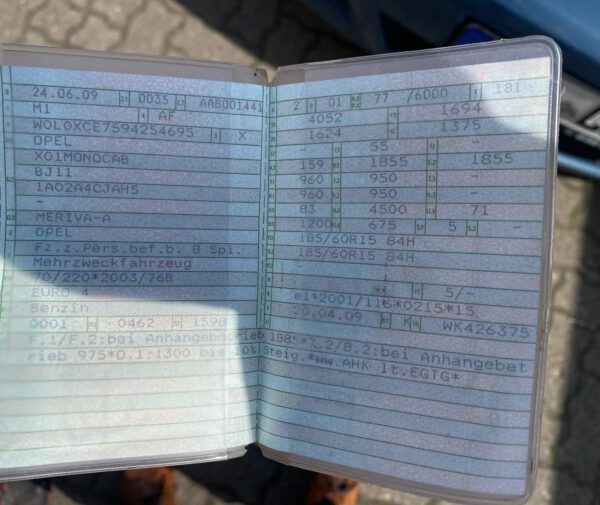 24.06.09 2.1 0035 2.2 AAB001441
M1 AF
WOLOXCE7594254695 3 X
OPEL
X01MONOCAB
BJ11
1A02A4CJAH5
-
MERIVA-A
OPEL
Fz.z.Pers.bef.b. 8 Spl.
Mehrzweckfahrzeug
70/220*2003/76B
EURO 4
Benzin
0001 0462 1598
F.1/F.2:bei Anhangebetrieb 1885*7.2/8.2:bei Anhangebet
rieb 975*0.1:1300 bis 10% Steig.*ww.AHK lt.EGTG*
2 01 77 /6000 181
4052 1694
1624 1375
- 55 -
159 1855 1855
960 950 -
960 950 -
83 4500 71
1200 675 5 -
185/60R15 84H
185/60R15 84H
-
- 5/-
e1*2001/116*0215*15
20.04.09 K WK426375